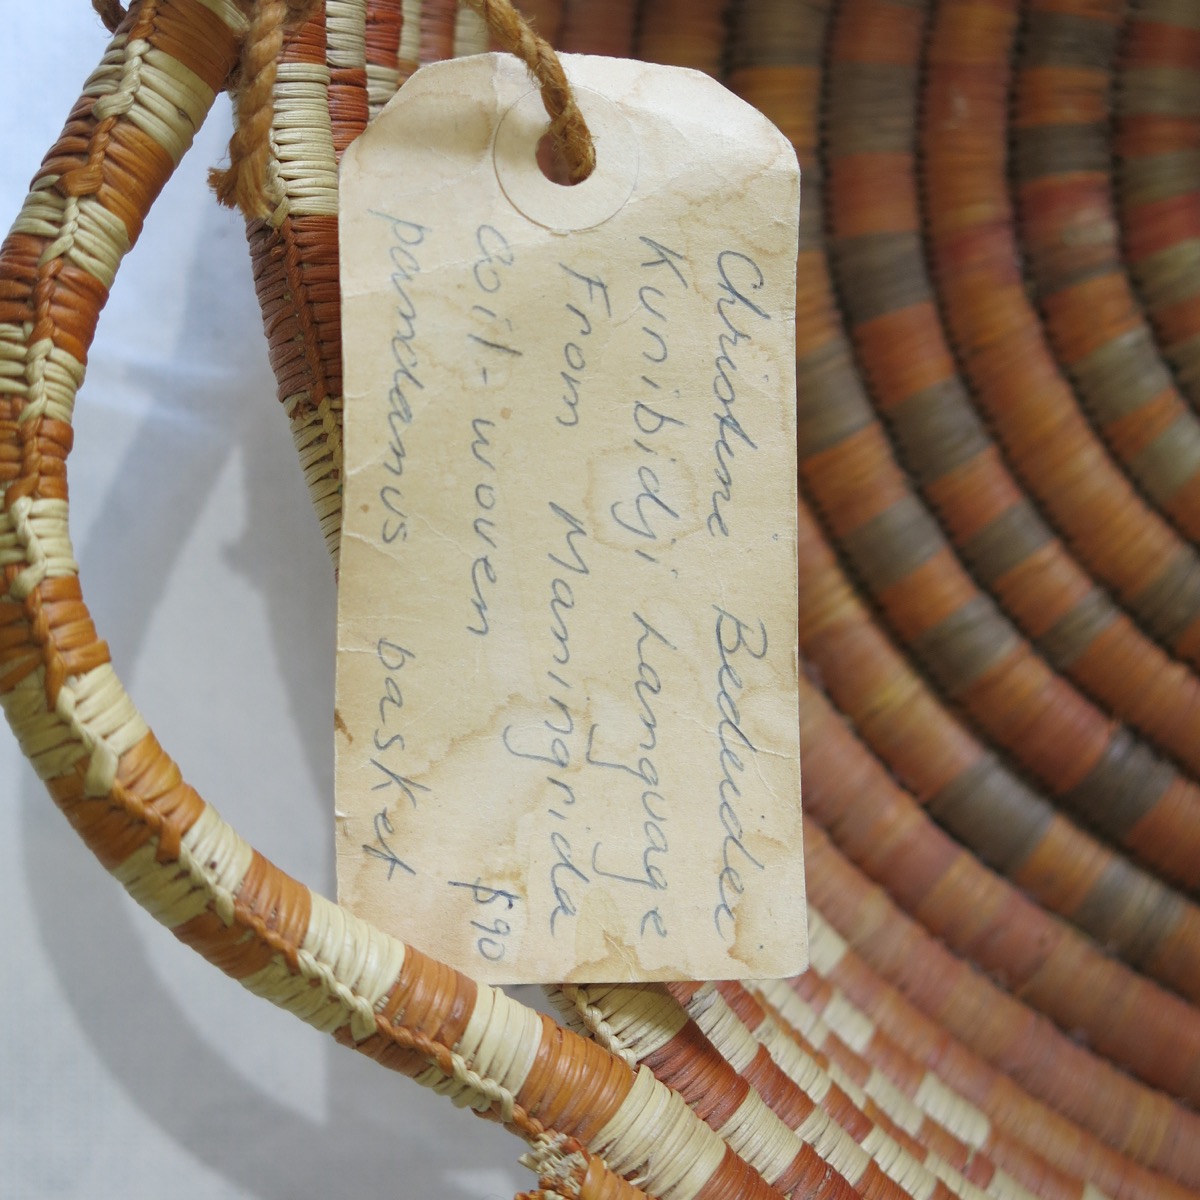 Christine Bedeidei
Kunibidji Language
From Maningrida
coil-woven $90
pandanus basket